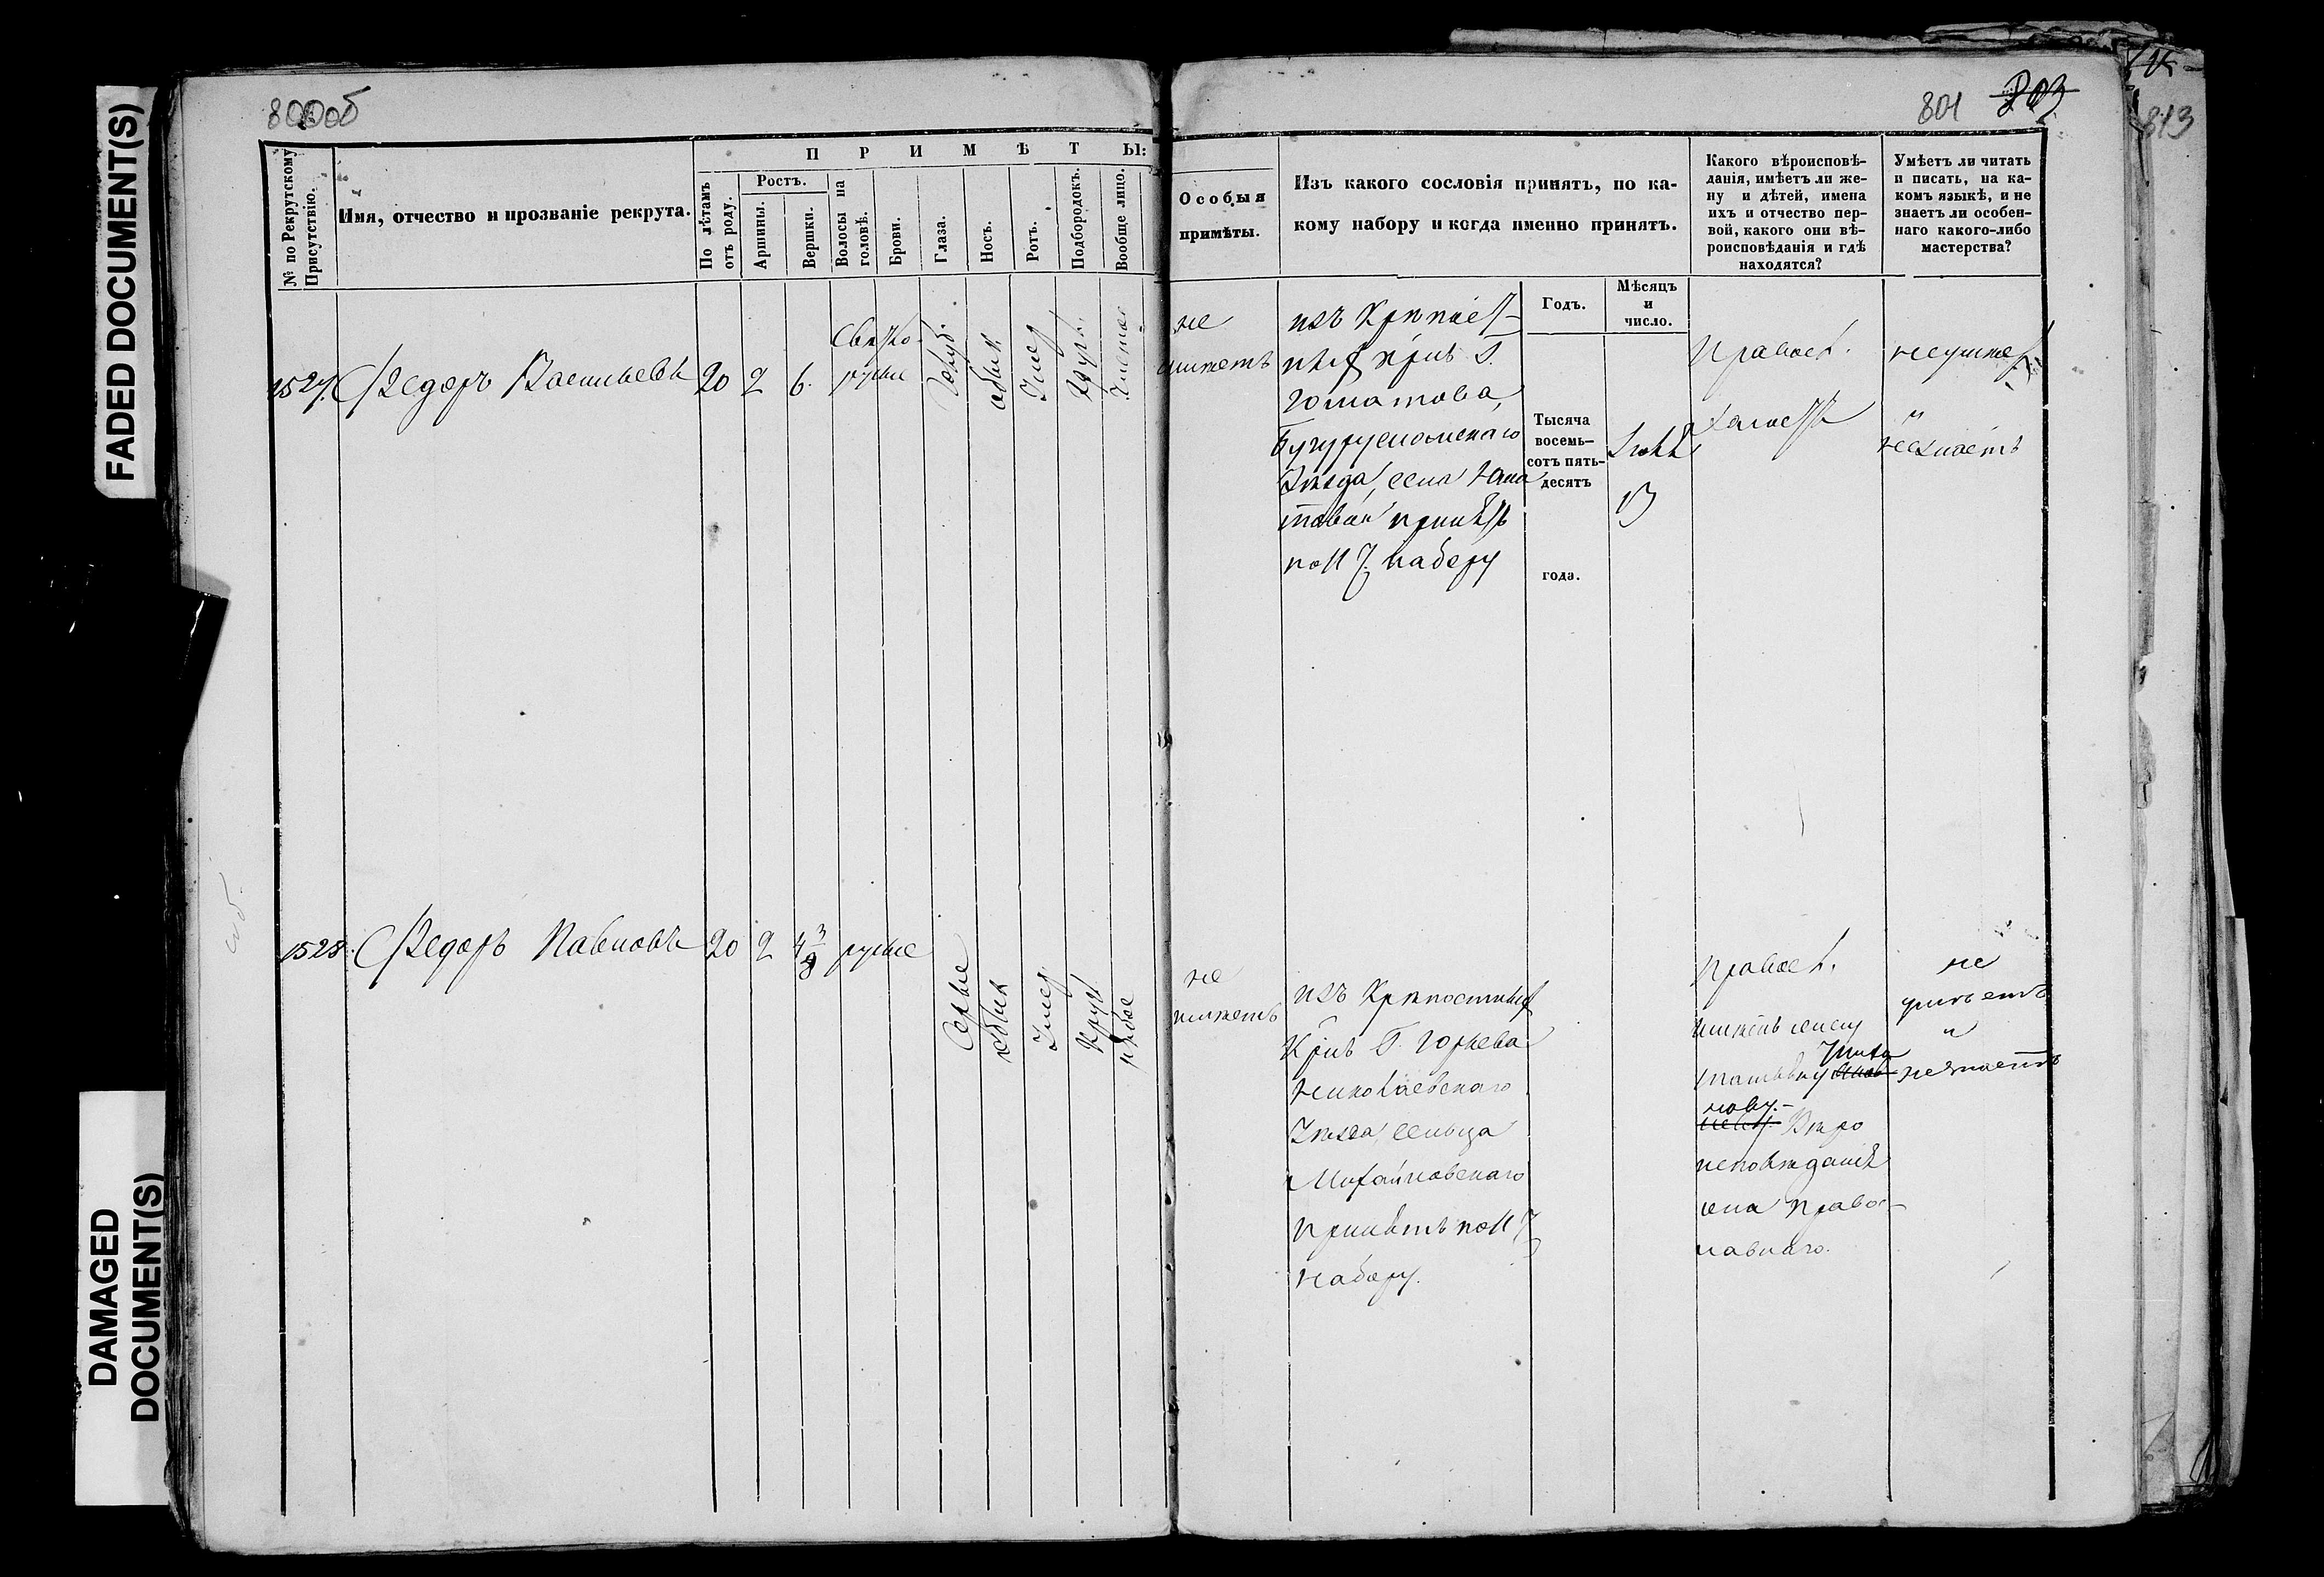 FADED DOCUMENT(S)
DAMAGED
DOCUMENT(S)
800об
801
813
П Р И М Ѣ Т Ы:
№ по Рекрутскому
Присутствію.
Имя, отчество и прозваніе рекрута.
По лѣтамъ
отъ роду.
Ростъ.
Аршины.
Вершки.
Волосы на
головѣ.
Брови.
Глаза.
Носъ.
Ротъ.
Подбородокъ.
Вообще лицо.
Особыя
примѣты.
Изъ какого сословія принятъ, по ка-
кому набору и когда именно принятъ.
Годъ.
Мѣсяцъ
и
число.
Какого вѣроисповѣ-
данія, имѣетъ ли же-
ну и дѣтей, имена
ихъ и отчество пер-
вой, какого они вѣ-
роисповѣданія и гдѣ
находятся?
Умѣетъ ли читать
и писать, на ка-
комъ языкѣ, и не
знаетъ ли особен-
наго какого-либо
мастерства?
1527. Федоръ Васильевъ 20 2 6.
Свѣтло
русые
не
имѣетъ
изъ Крѣпост-
ныхъ крѣс. Г.
Бугурусланскаго
Уѣзда, села
принятъ
по 11 Ч. набору
Тысяча
восемь-
сотъ пять-
десятъ
года.
13
Правосл.
холостъ
неумѣетъ
и
незнаетъ
1528. Федоръ Павловъ 20 2 4 3/8 русые
Серые
обык
Умер
Круг
рябое
не
имѣетъ
изъ Крѣпостныхъ
Крѣс. Г.
Николаевскаго
Уѣзда, сельца
Михайловскаго
принятъ по 11 Ч
набору.
Правосл.
имѣетъ жену
Вѣро
исповѣданія
она Право-
славнаго.
не
умѣетъ
и
незнаетъ